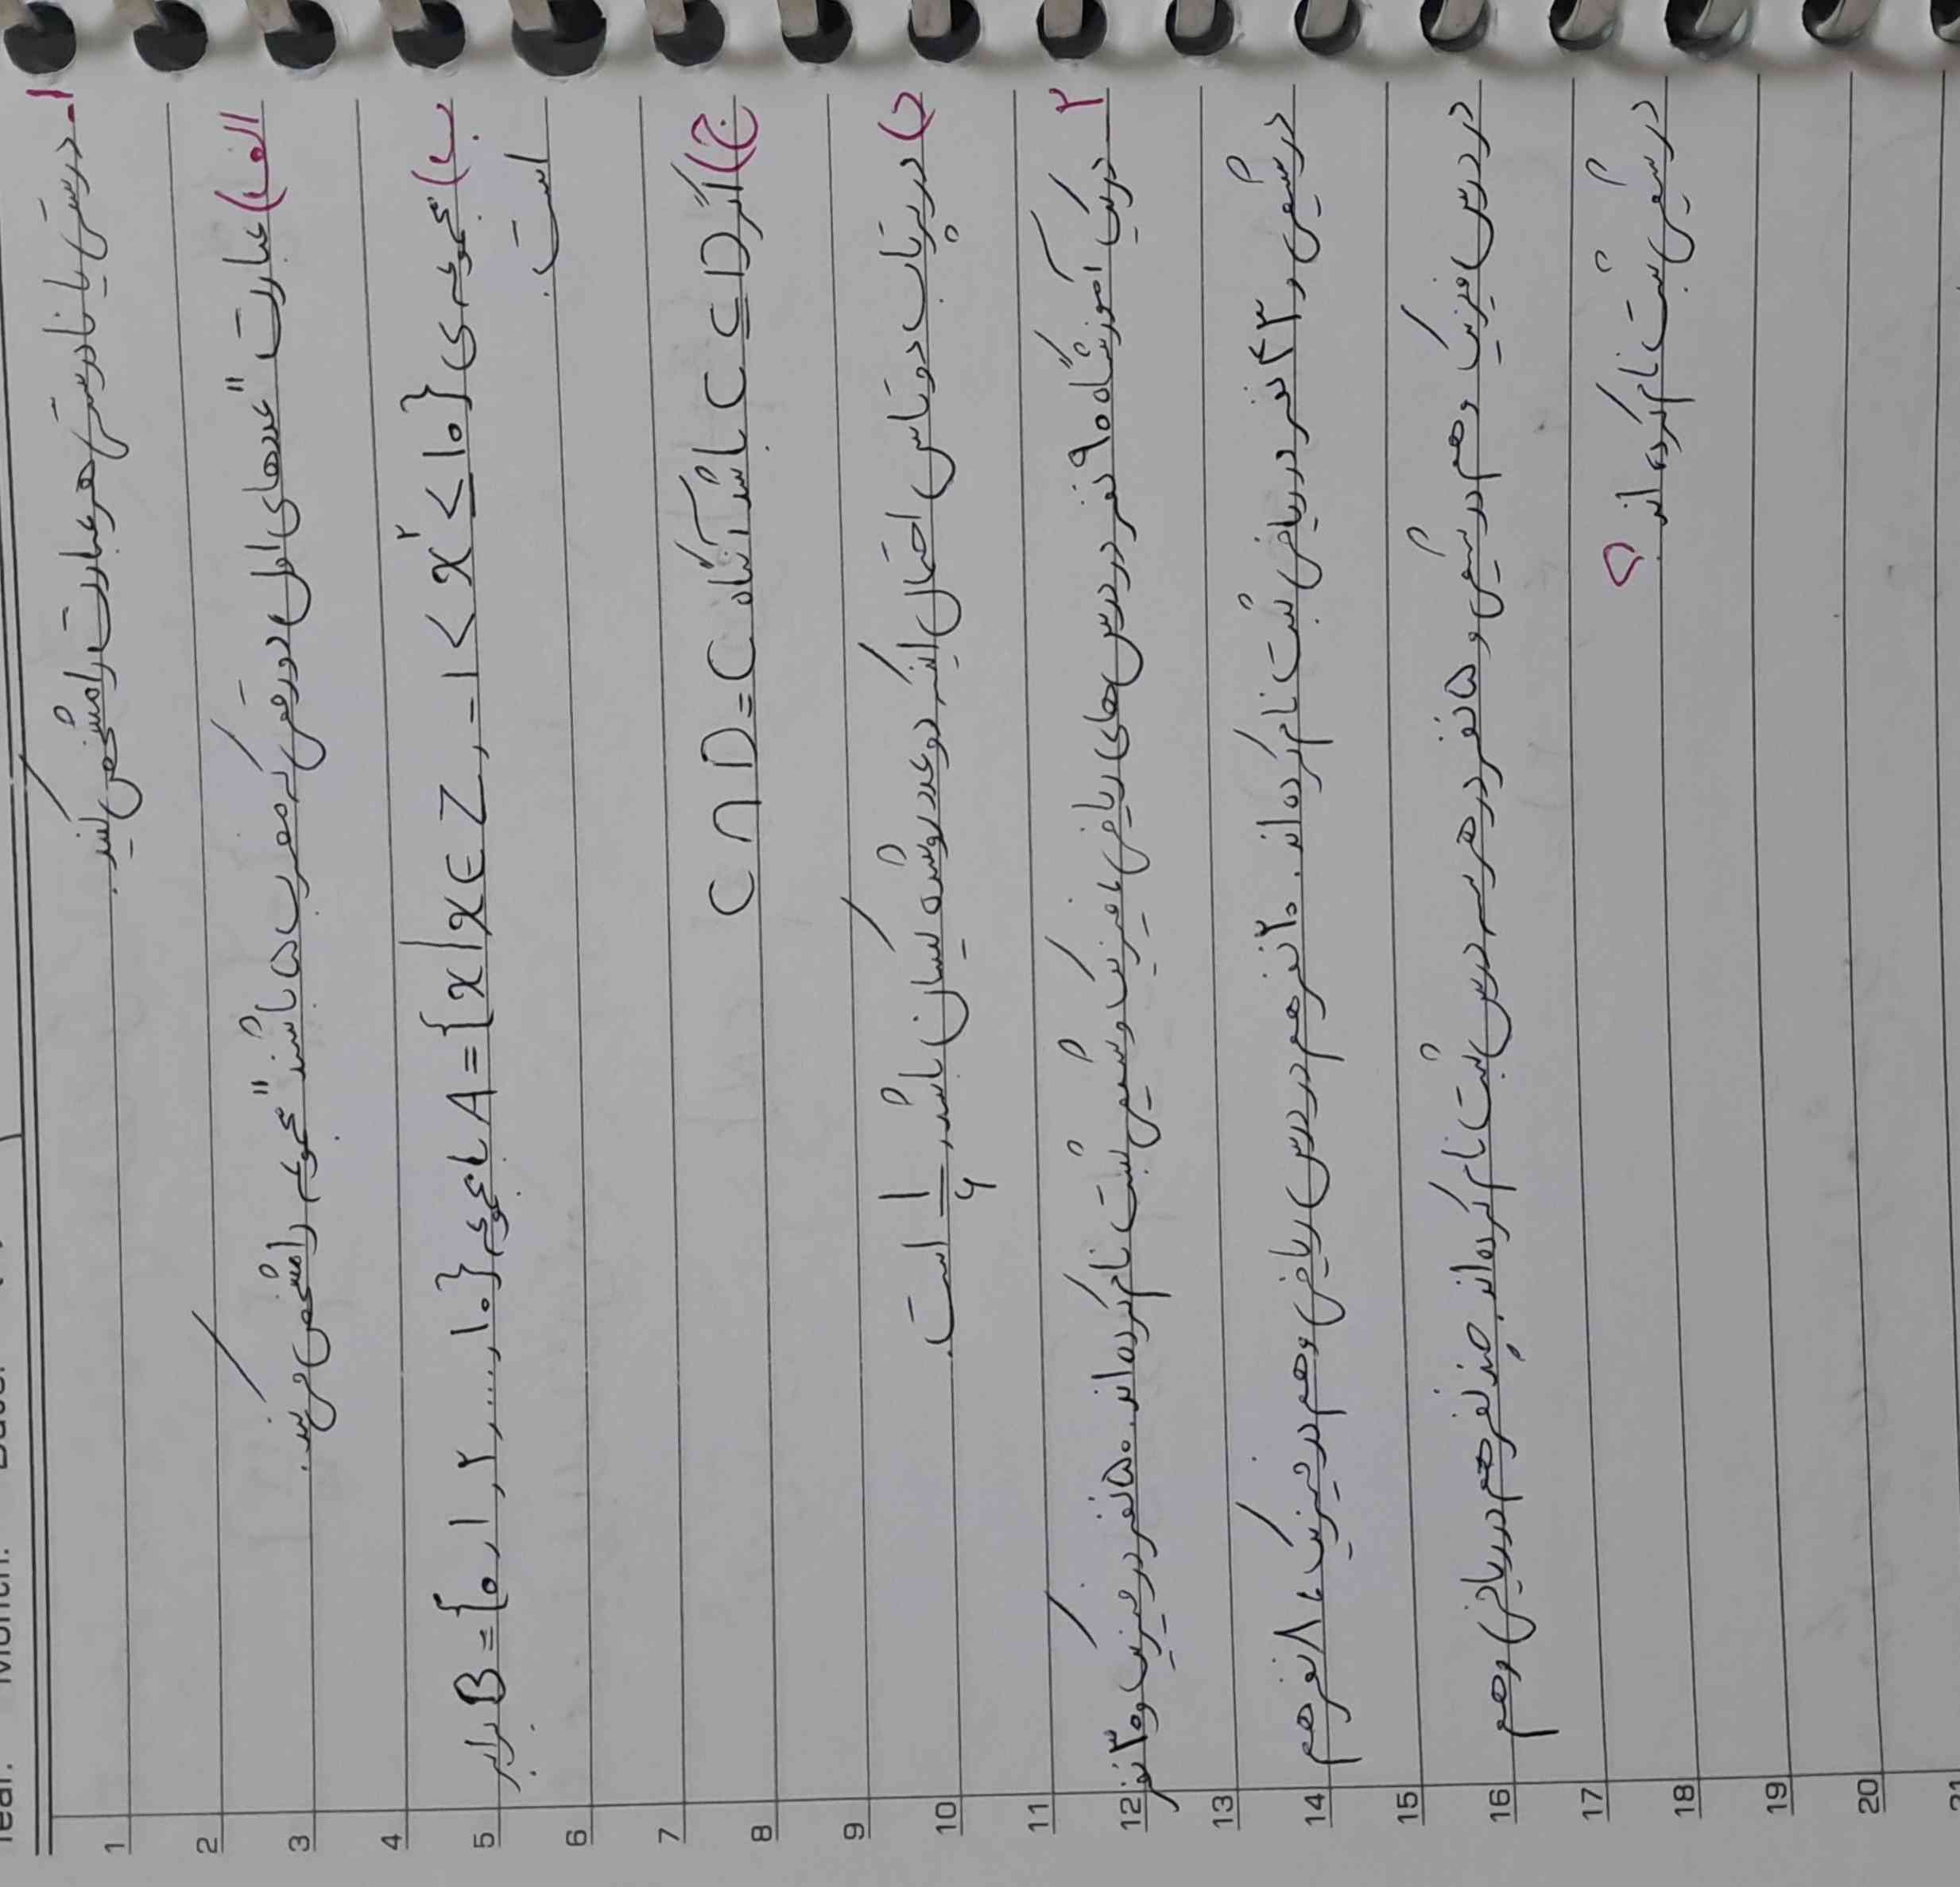 ۱_ درستی یا نادرستی هر عبارت را مشخص کنید.
الف) عبارت "عددهای اول دورقمی که مضرب ۵ باشند" مجموعه را مشخص می‌کند.
ب) مجموعه‌ی A = {x | x ∈ Z , -۱ < x² ≤ ۱۰} با مجموعه {۰ , ۱ , ۲ , ... , ۱۰} = B برابر
است.
ج) اگر C ⊆ D باشد آنگاه C ∩ D = C
د) در پرتاب دو تاس احتمال اینکه دو عدد رو شده یکسان باشد، ۱/۶ است.
۲_ در یک آموزشگاه ۹۰ نفر در درس های ریاضی، فیزیک و شیمی ثبت نام کرده اند. ۵۰ نفر در فیزیک و ۳۰ نفر
در شیمی و ۴۳ نفر در ریاضی ثبت نام کرده اند. ۲۰ نفر هم در درس ریاضی و هم در فیزیک، ۸ نفر هم
در درس فیزیک و هم در شیمی و ۵ نفر در هر سه درس ثبت نام کرده اند. چند نفر هم در ریاضی و هم
در شیمی ثبت نام کرده اند ؟
Year:
Month:
1
2
3
4
5
6
7
8
9
10
11
12
13
14
15
16
17
18
19
20
21